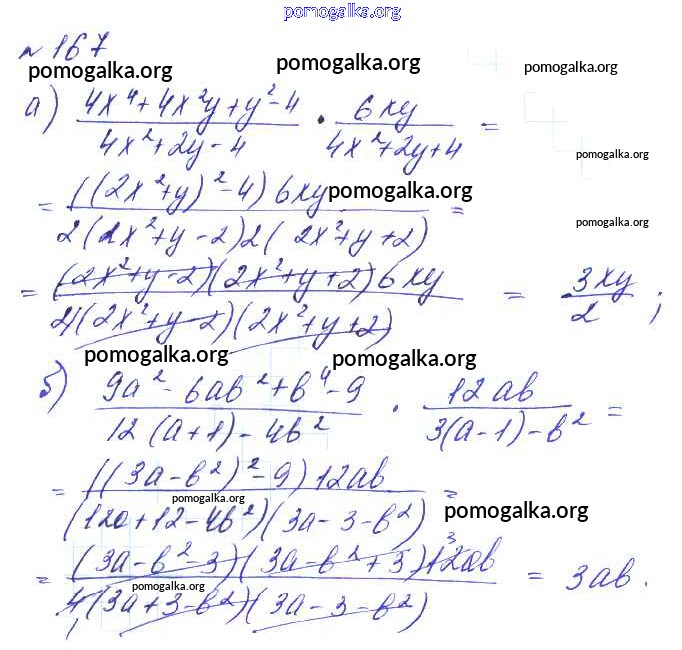 pomogalka.org
№ 167
pomogalka.org pomogalka.org pomogalka.org
а) (4x⁴ + 4x²y + y² - 4)/(4x² + 2y - 4) · 6xy/(4x² + 2y + 4) =
pomogalka.org
= ((2x² + y)² - 4) 6xy/(2(2x² + y - 2)2(2x² + y + 2)) =
pomogalka.org
pomogalka.org
= (2x² + y - 2)(2x² + y + 2) 6xy/(4(2x² + y - 2)(2x² + y + 2)) = 3xy/2 ;
pomogalka.org pomogalka.org
б) (9a² - 6ab² + b⁴ - 9)/(12(a + 1) - 4b²) · 12ab/(3(a - 1) - b²) =
= ((3a - b²)² - 9) 12ab/((12a + 12 - 4b²)(3a - 3 - b²)) =
pomogalka.org pomogalka.org
= (3a - b² - 3)(3a - b² + 3) 12³ab/(4₁(3a + 3 - b²)(3a - 3 - b²)) = 3ab.
pomogalka.org